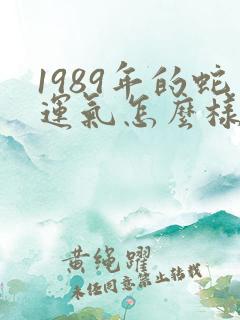 1989年的蛇
運氣怎麼樣
黄绳躍
未经同意禁止转载